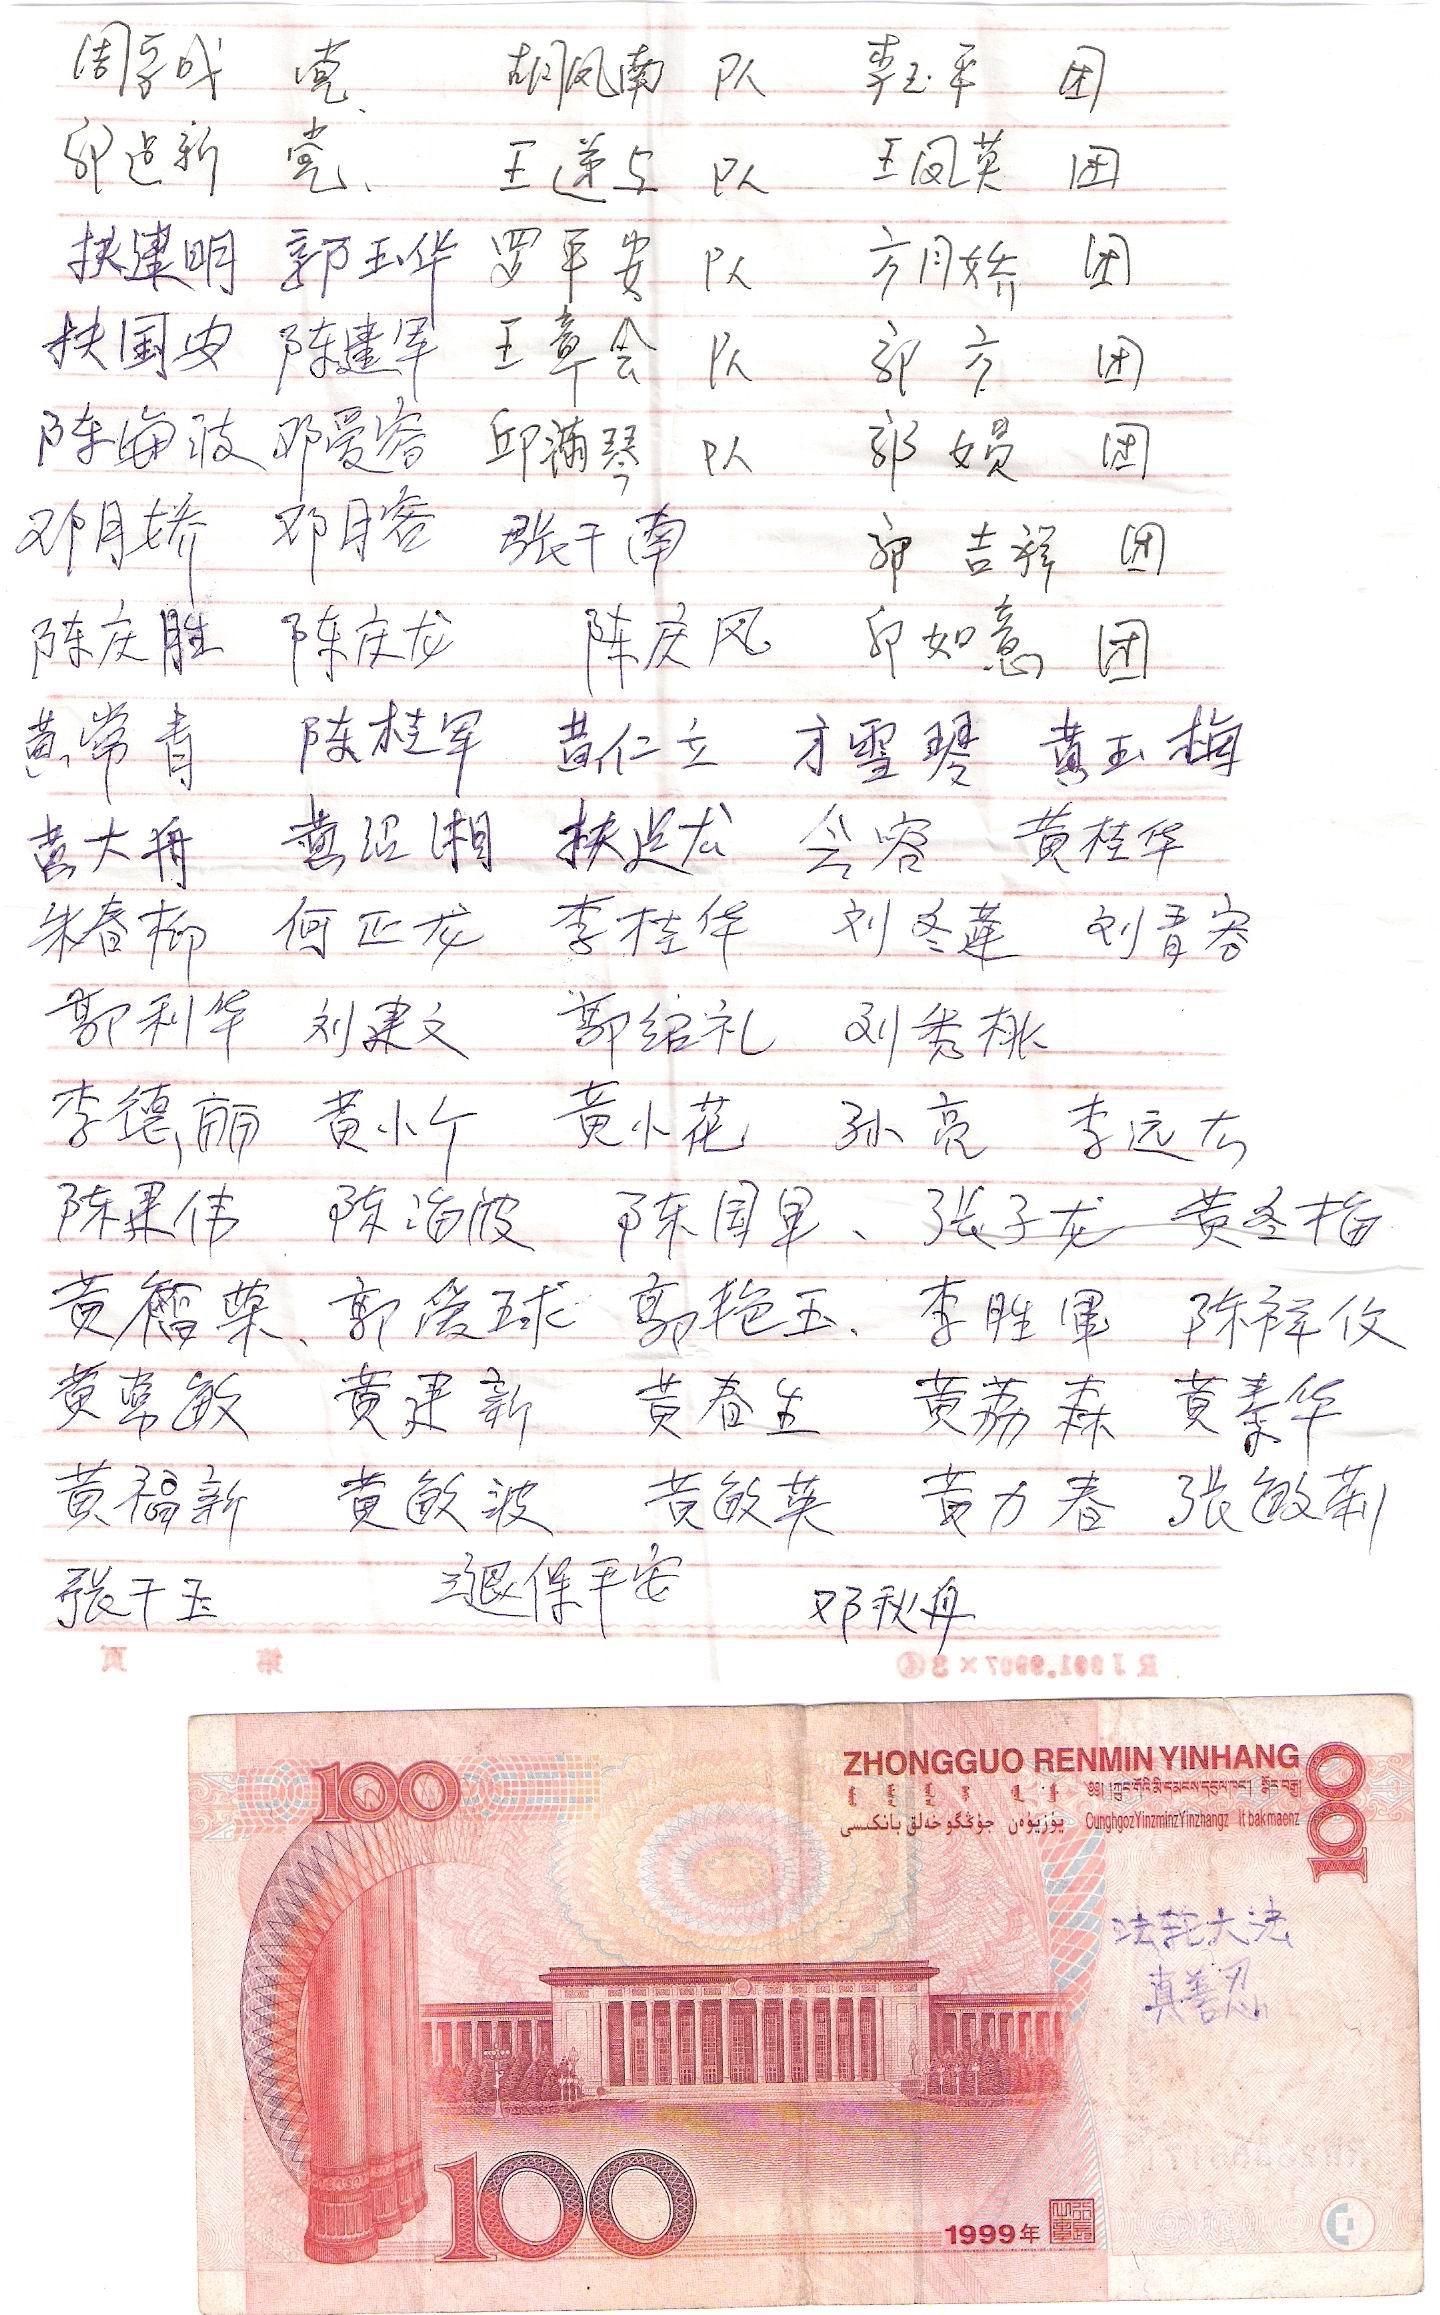 周享成 党 胡凤南 队 李玉平 团
新 党 王 队 王凤英 团
扶建明 郭玉华 罗平安 队 方月娇 团
扶国安 陈建军 王章会 队 郭方 团
陈海波 邓爱容 邱满琴 队 郭 团
邓月娇 邓月容 张干南 郭吉祥 团
陈庆胜 陈庆龙 陈庆风 如意 团
黄常青 陈桂军 黄仁立 方雪琴 黄玉梅
黄大舟 黄绍湘 扶 容 黄桂华
朱春柳 何正龙 李桂华 刘冬莲 刘青容
郭利华 刘建文 郭绍礼 刘秀桃
李德丽 黄小 黄小花 孙亮 李远
陈果伟 陈海波 陈国军、张子龙 黄冬梅
黄 荣、郭爱球 郭艳玉、李胜军 陈祥仪
黄常敏 黄建新 黄春生 黄荔森 黄秦华
黄福新 黄敏波 黄敏英 黄力春 张敏莉
张干玉 三退保平安 邓秋舟
第 页
100
ZHONGGUO RENMIN YINHANG
100
جۇڭگو خەلق بانكىسى يۈز يۈەن
CunghgozYinzminzYinzhangz it bakmaenz
法轮大法
真善忍
100
1999年